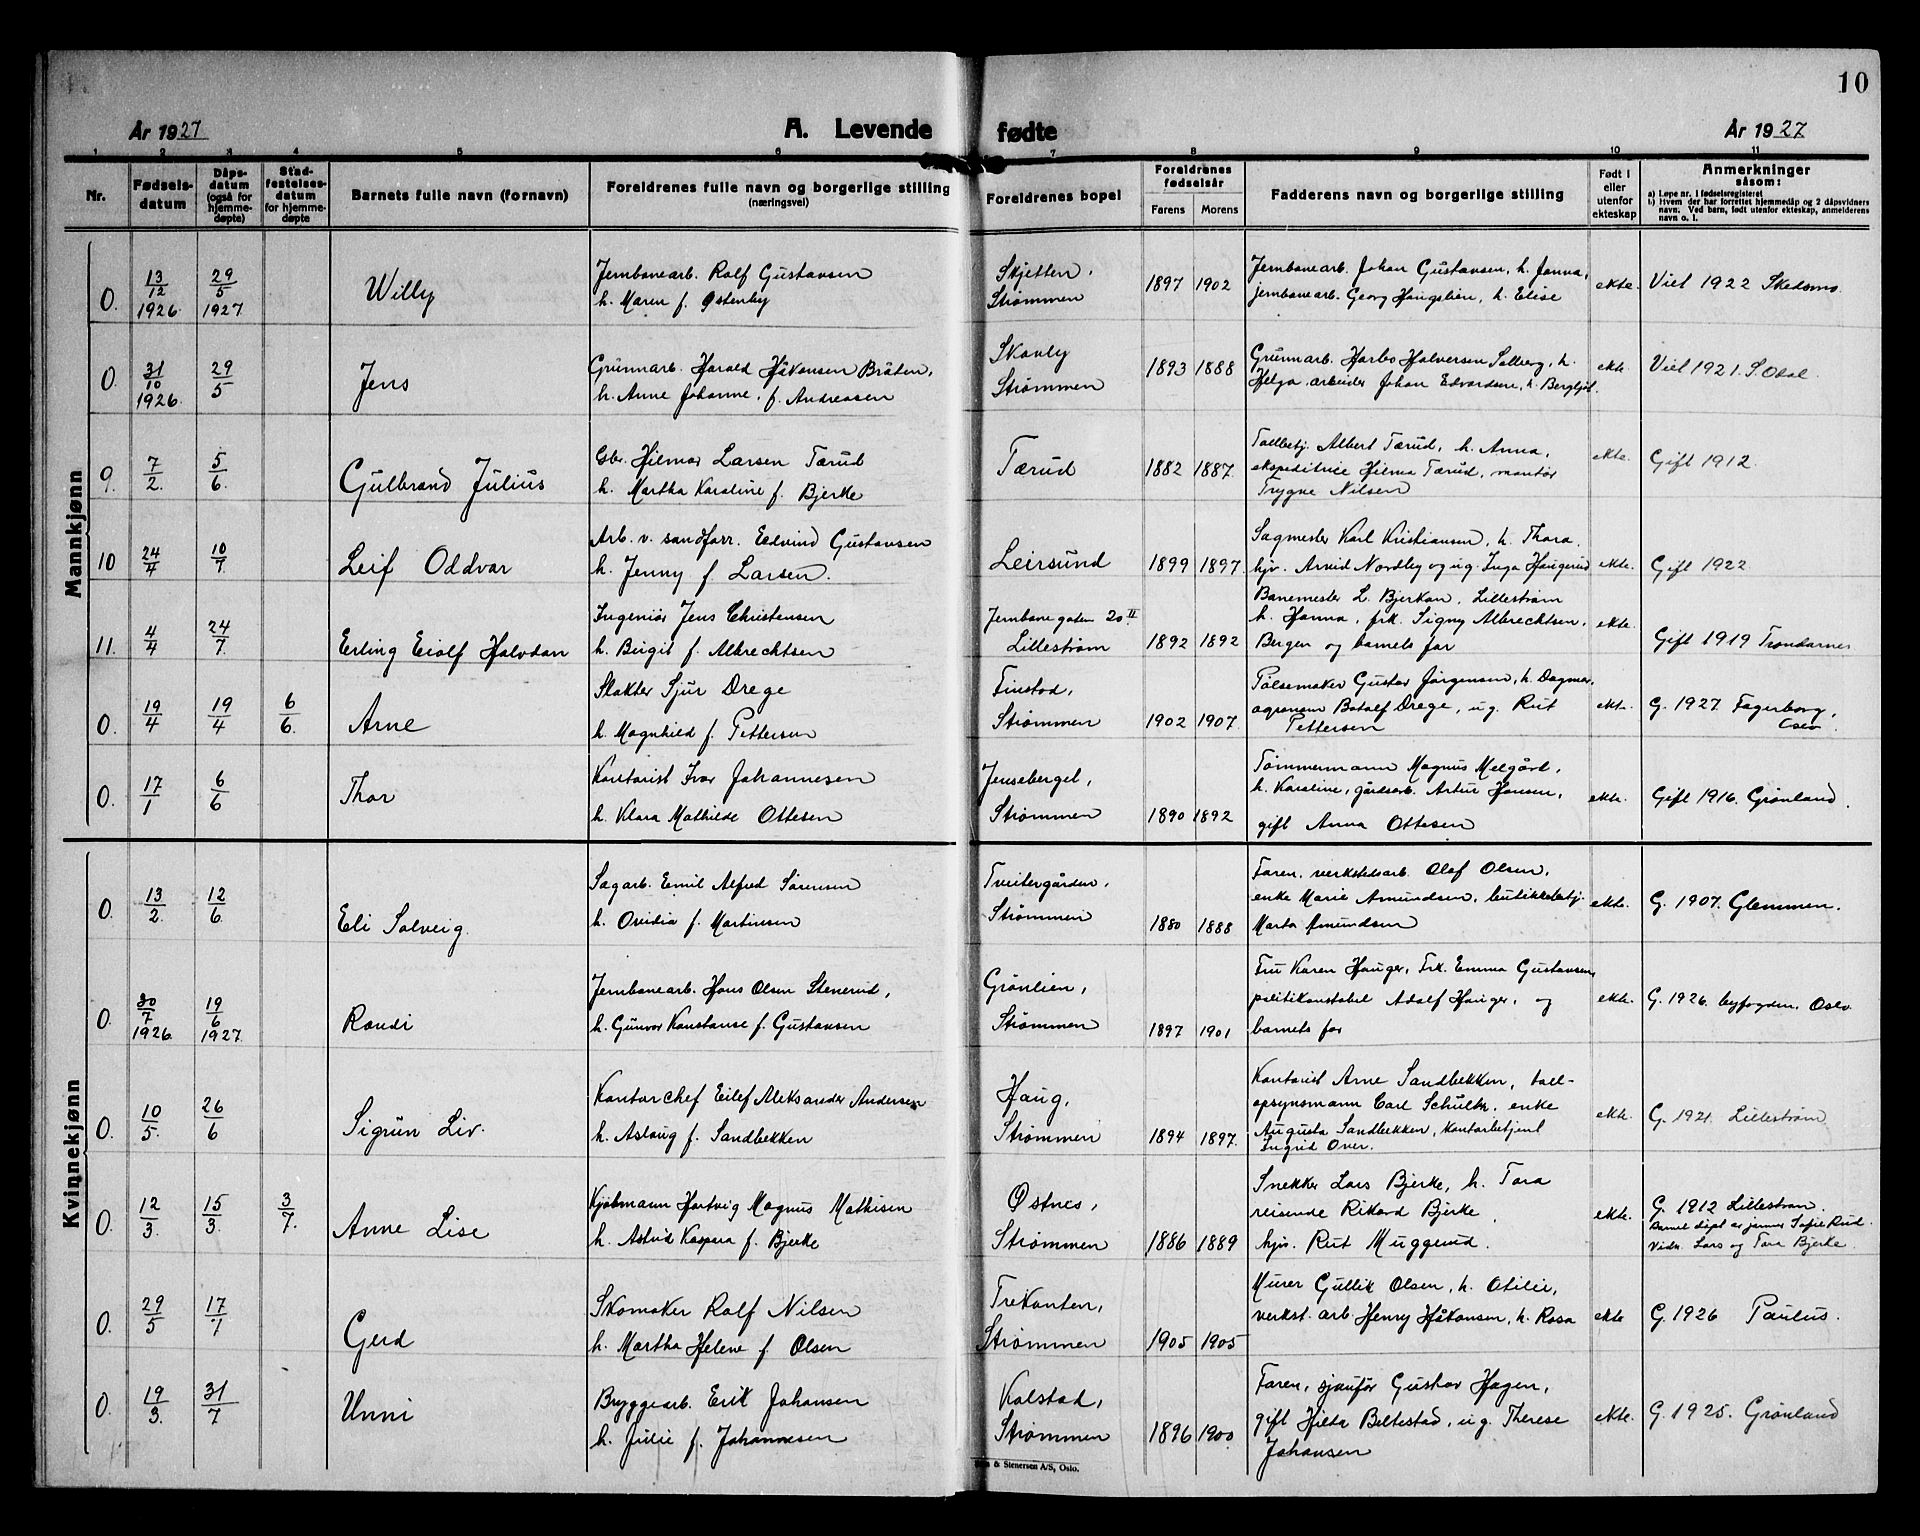 10
År 1927
A. Levende fødte
År 1927
1 2 3 4 5 6 7 8 9 10 11
Nr.
Fødsels-
datum
Dåps-
datum
(også for
hjemme-
døpte)
Stad-
festelses-
datum
for hjemme-
døpte
Barnets fulle navn (fornavn)
Foreldrenes fulle navn og borgerlige stilling
(næringsvei)
Foreldrenes bopel
Foreldrenes
fødselsår
Farens Morens
Fadderens navn og borgerlige stilling
Født i
eller
utenfor
ekteskap
Anmerkninger
såsom:
a) Løpe nr. i fødselsregisteret
b) Hvem der har forrettet hjemmedåp og 2 dåpsvidners
navn. Ved barn, født utenfor ekteskap, anmelderens
navn o. l.
Mannkjønn
0. 13/12 1926. 29/5 1927
Willy
Jernbanearb. Rolf Gustavsen
h. Maren f. Østenby
Skjetten,
Strømmen
1897 1902
Jernbanearb. Johan Gustavsen, h. Janna,
jernbanearb. Georg Haugslien, h. Elise
ekte.
Viet 1922 Skedsmo.
0. 31/10 1926. 29/5
Jens
Grünnarb. Harald Håkonsen Bråten,
h. Anne Johanne, f. Andreasen
Skovly
Strømmen
1893 1888
Grünnarb. Halversen Solberg, h.
Helga arbeider Johan Edvardsen, h. Bergljot.
ekte.
Viet 1921. S. Odal.
9. 7/2. 5/6.
Gulbrand Julius
Gbr. Hilmar Larsen Tærud
h. Martha Karoline f. Bjerke
Tærud
1882 1887.
Tollbetj. Albert Tærud, h. Anna,
ekspeditrice Hilma Tærud, montør
Trygve Nilsen
ekte.
Gift 1912.
10 24/4 10/7
Leif Oddvar
Arb. v. sandforr. Edvind Gustavsen
h. Jenny f. Larsen.
Leirsund
1899 1897.
Sagmester Karl Kristiansen, h. Thora.
hjv. Arvid Nordby og ug. Inga Haugerud
ekte.
Gift 1922.
11. 4/4 24/7
Erling Eiolf Halvdan
Ingeniør Jens Christensen
h. Birgit f. Albrechtsen
Jernbanegaten 20II
Lillestrøm
1892 1892
Banemester L. Bjerkan, Lillestrøm
h. Hanna, frk. Signy Albrechtsen,
Bergen og barnets far
ekte.
Gift 1919 Trondarnes
0. 19/4 19/4 6/6.
Arne
Slakter Sjur Drege
h. Magnhild f. Pettersen
Finstad,
Strømmen
1902 1907.
Pølsemaker Gustav Jørgensen, h. Dagmar,
agronom Botolf Drege, ug. Rut
Pettersen
ekte.
G. 1927. Fagerborg,
Oslo
0. 17/1 6/6
Thor
Kontorist Ivar Johannesen
h. Klara Mathilde Ottesen
Jenseberget,
Strømmen
1890 1892
Tømmermann Magnus Melgård,
h. Karoline, gårdsarb. Artur Hansen,
gift Anna Ottesen
ekte.
Gift 1916. Grønland.
Kvinnekjønn
0. 13/2. 12/6.
Eli Solveig.
Sagarb. Emil Alfred Sørensen
h. Ovidia f. Martinsen
Tveitergården,
Strømmen
1880 1888
Faren, verkstedsarb. Olaf Olsen,
enke Marie Amundsen, butikkbetj.
Marta Amundsen
ekte.
G. 1907. Glemmen.
0. 30/7 1926. 19/6 1927.
Randi
Jernbanearb. Hans Olsen Stenerud,
h. Gunvor Konstanse f. Gustavsen
Grønlien,
Strømmen
1897 1901
Fru Karen Hauger, Frk. Emma Gustavsen,
politikonstabel Adolf Hauger, og
barnets far
ekte.
G. 1926. byfogden. Oslo
0. 10/5. 26/6
Sigrun Liv.
Kontorchef Eilef Aleksander Andersen
h. Aslaug f. Sandbekken
Haug,
Strømmen
1894 1897.
Kontorist Arne Sandbekken, toll-
opsynsmann Carl Schultz, enke
Augusta Sandbekken, kontorbetjent
Ingrid Over.
ekte.
G. 1921. Lillestrøm
0. 12/3. 15/3. 3/7.
Anne Lise
Kjøbmann Hartvig Magnus Mathisen
h. Astrid Kaspara f. Bjerke
Østnes,
Strømmen
1886 1889
Snekker Lars Bjerke, h. Tora
reisende Rikard Bjerke
hjv. Rut Muggerud.
ekte.
G. 1912 Lillestrøm.
Barnet døpt av jormor Sofie Rud.
Vidn. Lars og Tora Bjerke.
0. 29/5 17/7
Gerd
Skomaker Rolf Nilsen
h. Martha Helene f. Olsen
Trekanten,
Strømmen
1905 1905
Murer Gullik Olsen, h. Otilie,
verkst. arb Henry Håkonsen, h. Rosa
ekte
G. 1926 Paulus.
0. 19/3. 31/7
Unni
Bryggearb. Erik Johansen
h. Julie f. Johannesen
Kolstad,
Strømmen
1896 1900
Faren, sjaufør Gustav Hagen,
gift Hilda Beltestad, ug. Therese
Johansen
ekte.
G. 1925. Grønland
& Stenersen A/S, Oslo.